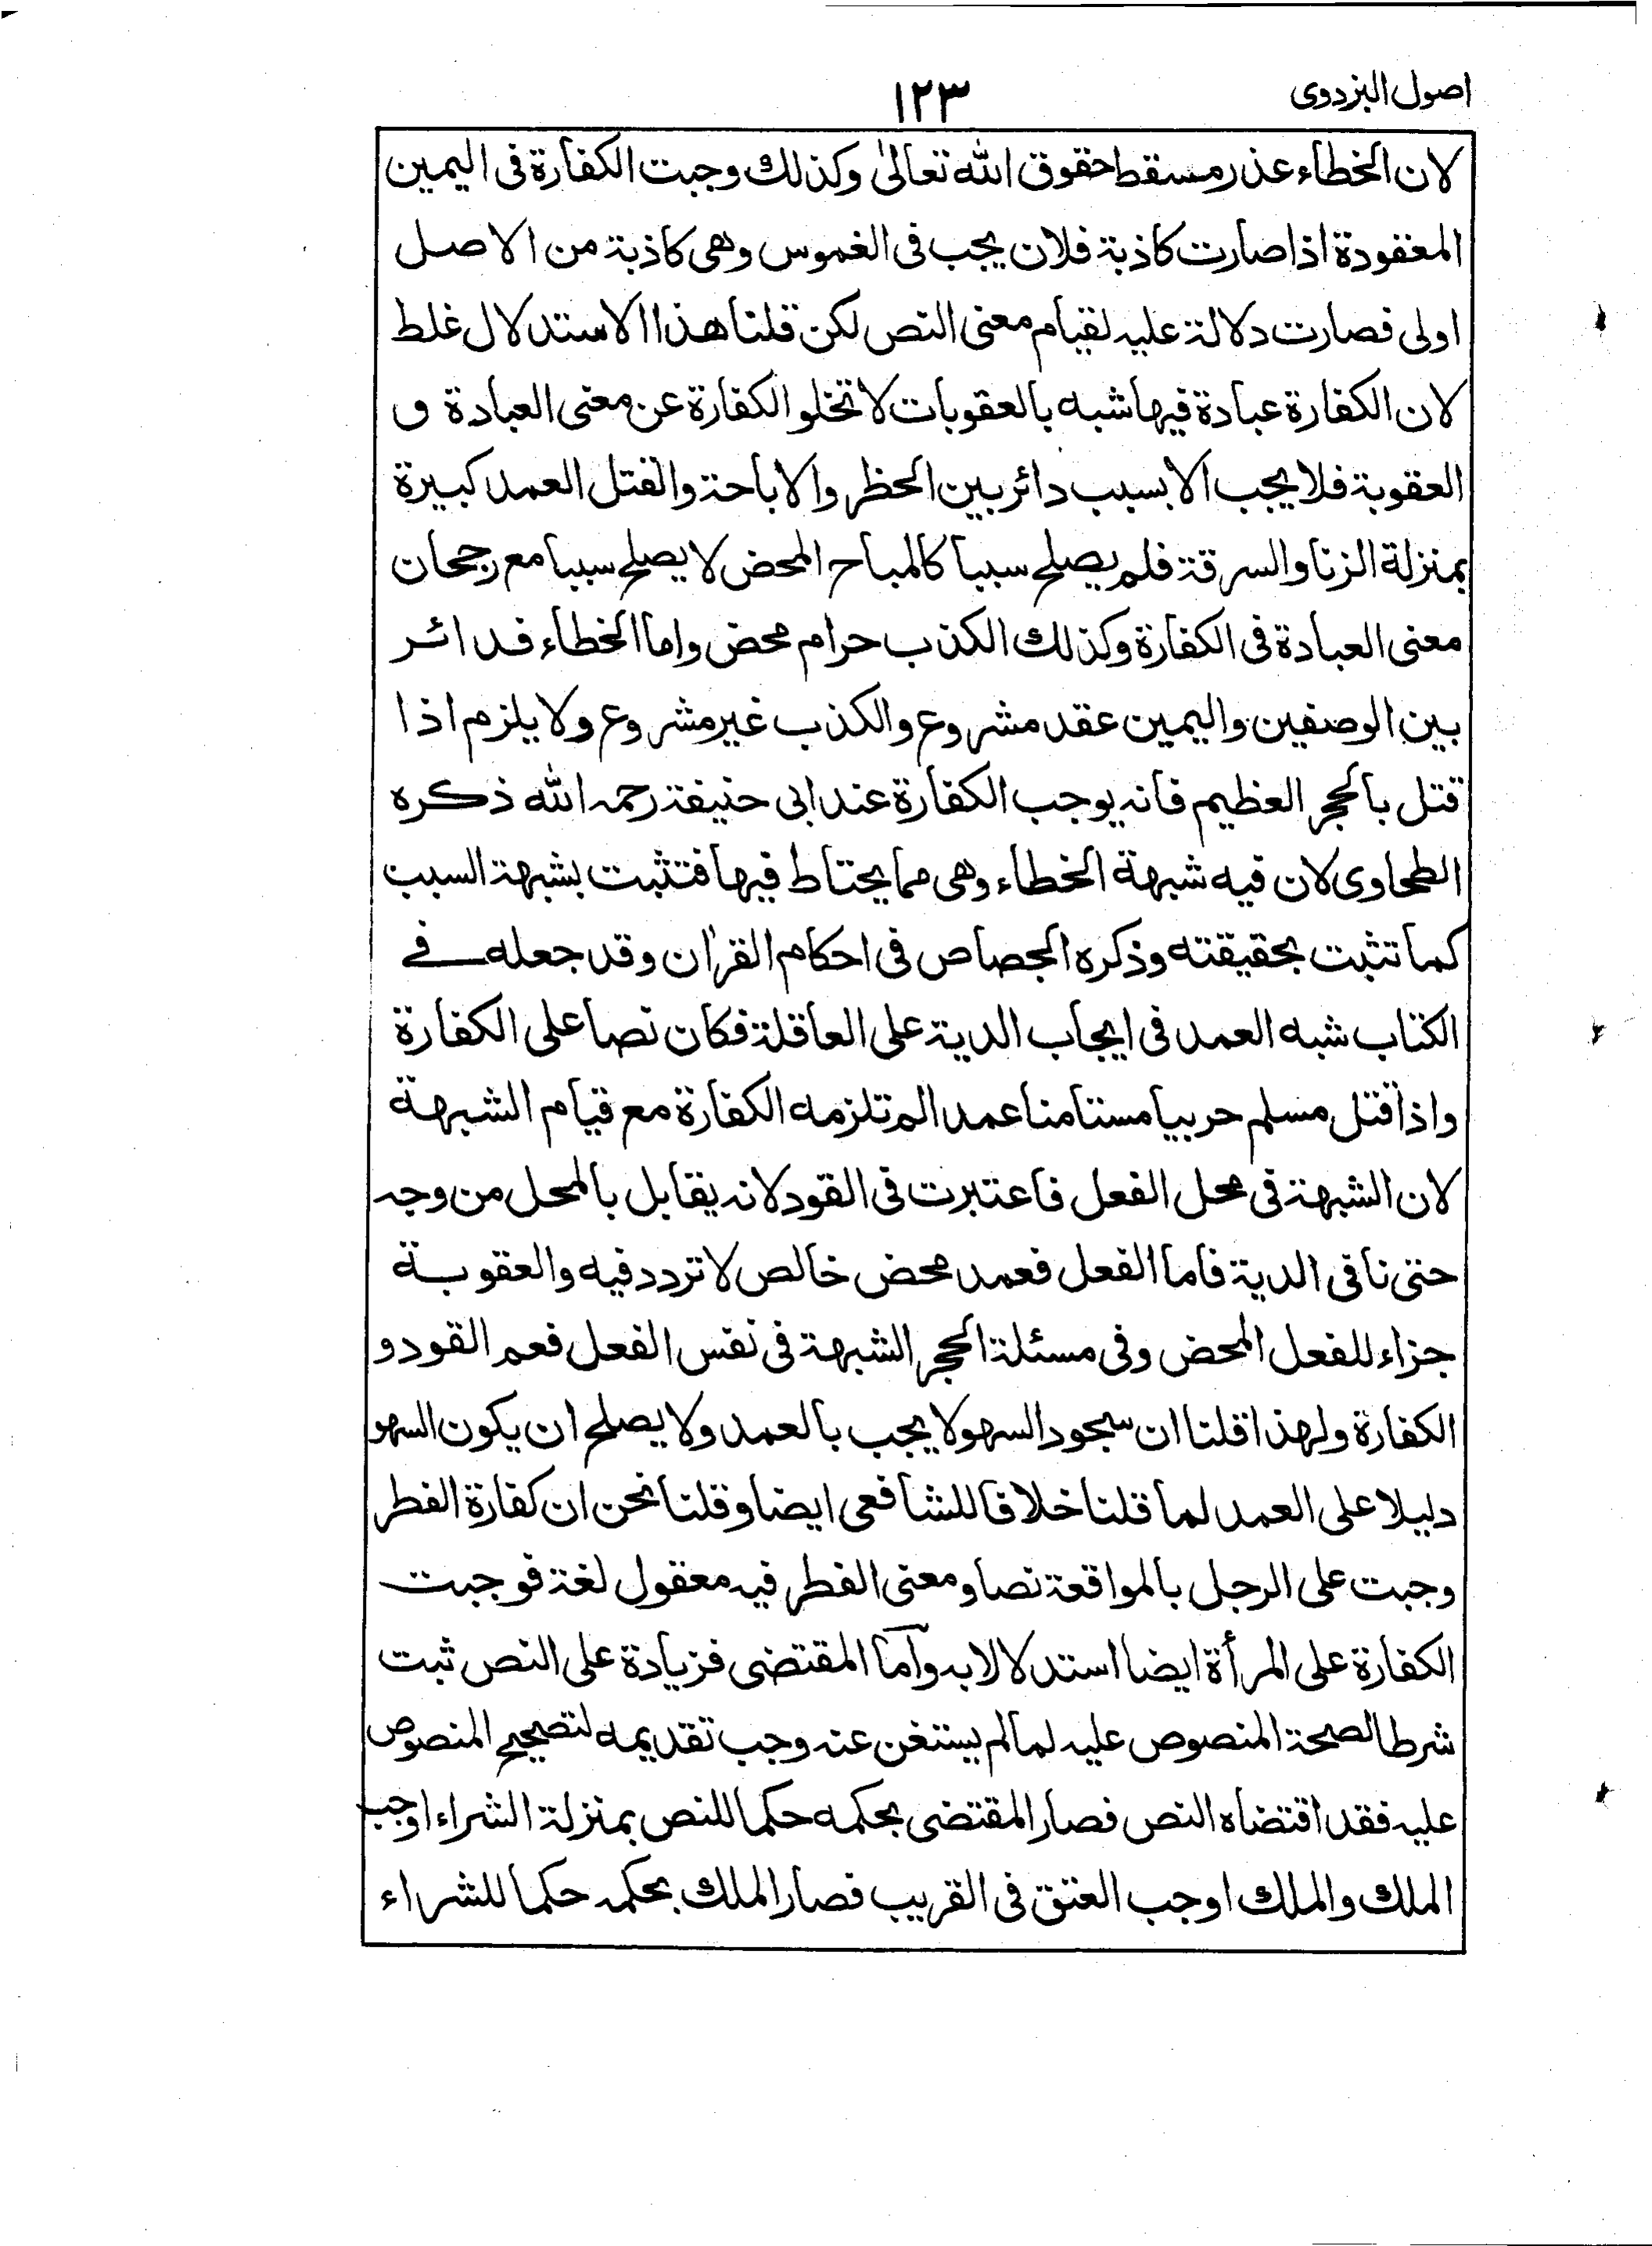 اصول البزدوی
١٢٣
لان الخطاء عذر مسقط حقوق الله تعالیٰ وكذلك وجبت الكفارة فی الیمین
المعقودة اذا صارت كاذبة فلان یجب فی الغموس وهی كاذبة من الاصل
اولی فصارت دلالة علیه لقیام معنی النص لكن قلنا هذا الاستدلال غلط
لان الكفارة عبادة فیها شبه بالعقوبات لا تخلو الكفارة عن معنی العبادة و
العقوبة فلا یجب الا بسبب دائر بین الحظر والاباحة والقتل العمد كبیرة
بمنزلة الزنا والسرقة فلم یصلح سببا كالمباح المحض لا یصلح سببا مع رجحان
معنی العبادة فی الكفارة وكذلك الكذب حرام محض واما الخطاء فدائر
بین الوصفین والیمین عقد مشروع والكذب غیر مشروع ولا یلزم اذا
قتل بالحجر العظیم فانه یوجب الكفارة عند ابی حنیفة رحمه الله ذكره
الطحاوی لان فیه شبهة الخطاء وهی مما یحتاط فیها فتثبت بشبهة السبب
كما تثبت بحقیقته وذكره الجصاص فی احكام القرآن وقد جعله فے
الكتاب شبه العمد فی ایجاب الدیة علی العاقلة فكان نصا علی الكفارة
واذا قتل مسلم حربیا مستامنا عمدا لم تلزمه الكفارة مع قیام الشبهة
لان الشبهة فی محل الفعل فاعتبرت فی القود لانه یقابل بالمحل من وجه
حتی نافی الدیة فاما الفعل فعمد محض خالص لا تردد فیه والعقوبة
جزاء للفعل المحض وفی مسئلة الحجر الشبهة فی نفس الفعل فعم القود و
الكفارة ولهذا قلنا ان سجود السهو لا یجب بالعمد ولا یصلح ان یكون السهو
دلیلا علی العمد لما قلنا خلافا للشافعی ایضا وقلنا نحن ان كفارة الفطر
وجبت علی الرجل بالمواقعة نصا ومعنی الفطر فیه معقول لغة فوجبت
الكفارة علی المرأة ایضا استدلالا به وأما المقتضی فزیادة علی النص ثبت
شرطا لصحة المنصوص علیه لما لم یستغن عنه وجب تقدیمه لتصحیح المنصوص
علیه فقد اقتضاه النص فصار المقتضی بحكمه حكما للنص بمنزلة الشراء اوجب
الملك والملك اوجب العتق فی القریب فصار الملك بحكمه حكما للشراء